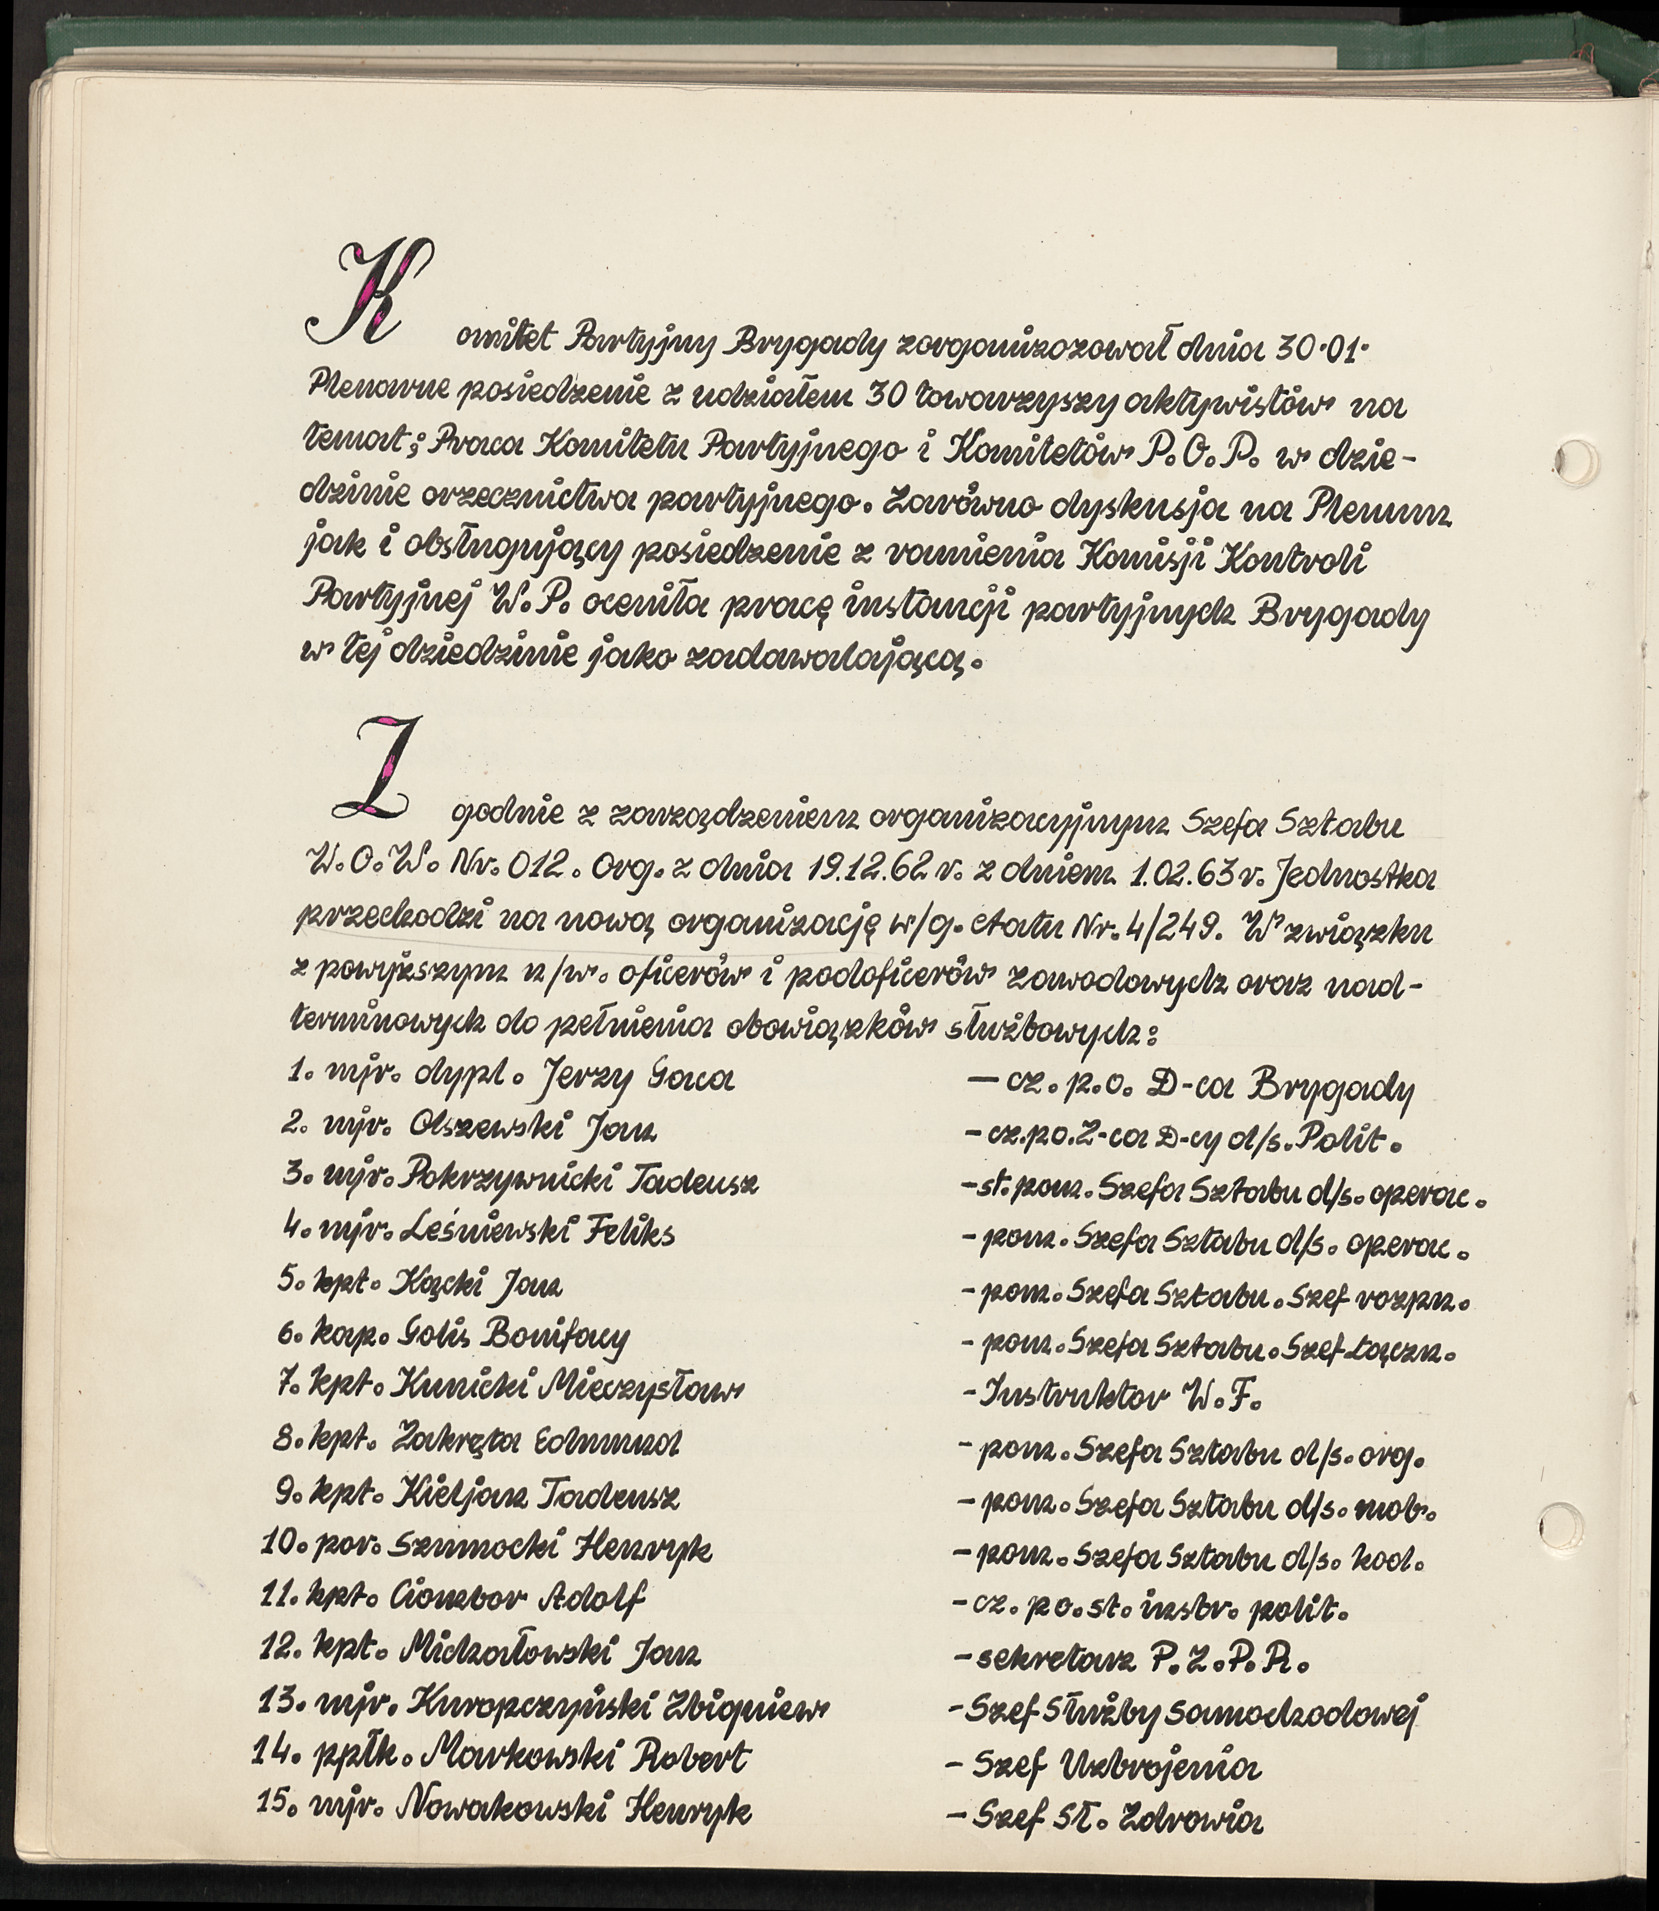 Komitet Partyjny Brygady zorganizozował dnia 30.01.
Plenarne posiedzenie z udziałem 30 towarzyszy aktywistów na
temat; Praca Komitetu Partyjnego i Komitetów P.O.P. w dzie-
dzinie orzecznictwa partyjnego. Zarówno dyskusja na Plenum
jak i obsługujący posiedzenie z ramienia Komisji Kontroli
Partyjnej W.P. oceniła pracę instancji partyjnych Brygady
w tej dziedzinie jako zadawalającą.
Zgodnie z zarządzeniem organizacyjnym Szefa Sztabu
W.O.W. Nr. 012. Org. z dnia 19.12.62 r. z dniem 1.02.63 r. Jednostka
przechodzi na nową organizację w/g. etatu Nr. 4/249. W związku
z powyższym n/w. oficerów i podoficerów zawodowych oraz nad-
terminowych do pełnienia obowiązków służbowych:
1. mjr. dypl. Jerzy Gaca — cz. p.o. D-ca Brygady
2. mjr. Olszewski Jan - cz.po. Z-ca D-cy d/s. Polit.
3. mjr. Pokrzywnicki Tadeusz - st. pom. Szefa Sztabu d/s. operac.
4. mjr. Leśniewski Feliks - pom. Szefa Sztabu d/s. operac.
5. kpt. Kącki Jan - pom. Szefa Sztabu. Szef rozpn.
6. kap. Golis Bonifacy - pom. Szefa Sztabu. Szef Łączn.
7. kpt. Kunicki Mieczysław - Instruktor W.F.
8. kpt. Zakręta Edmund - pom. Szefa Sztabu d/s. org.
9. kpt. Kieljan Tadeusz - pom. Szefa Sztabu d/s. mob.
10. por. Szumocki Henryk - pom. Szefa Sztabu d/s. kod.
11. kpt. Ciombor Adolf - cz. po. st. instr. polit.
12. kpt. Michałowski Jan - sekretarz P.Z.P.R.
13. mjr. Kuropczyński Zbigniew - Szef Służby Samochodowej
14. ppłk. Markowski Robert - Szef Uzbrojenia
15. mjr. Nowakowski Henryk - Szef Sł. Zdrowia